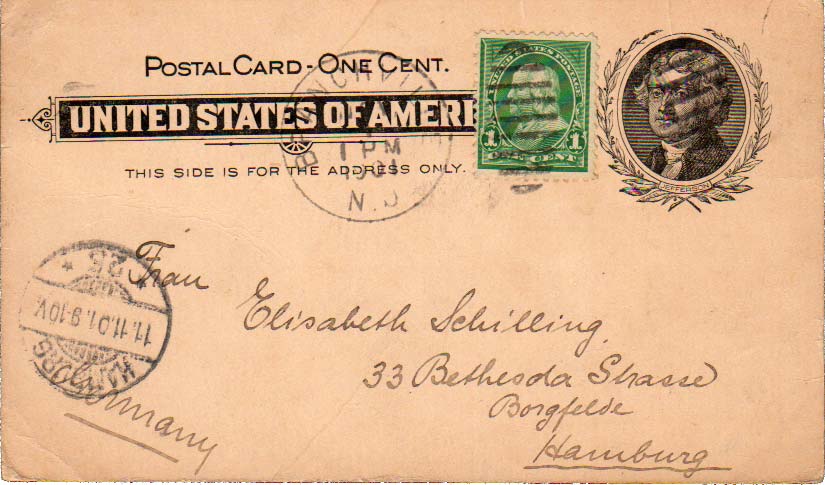 POSTAL CARD - ONE CENT.
UNITED STATES OF AMERI
THIS SIDE IS FOR THE ADDRESS ONLY.
1 PM
1901
N.J
UNITED STATES POSTAGE
1 ONE CENT 1
JEFFERSON
Frau
Elisabeth Schilling,
33 Bethesda Strasse
Borgfelde
Hamburg
Germany
HAMBURG
11.11.01.9-10V.
* 25 *